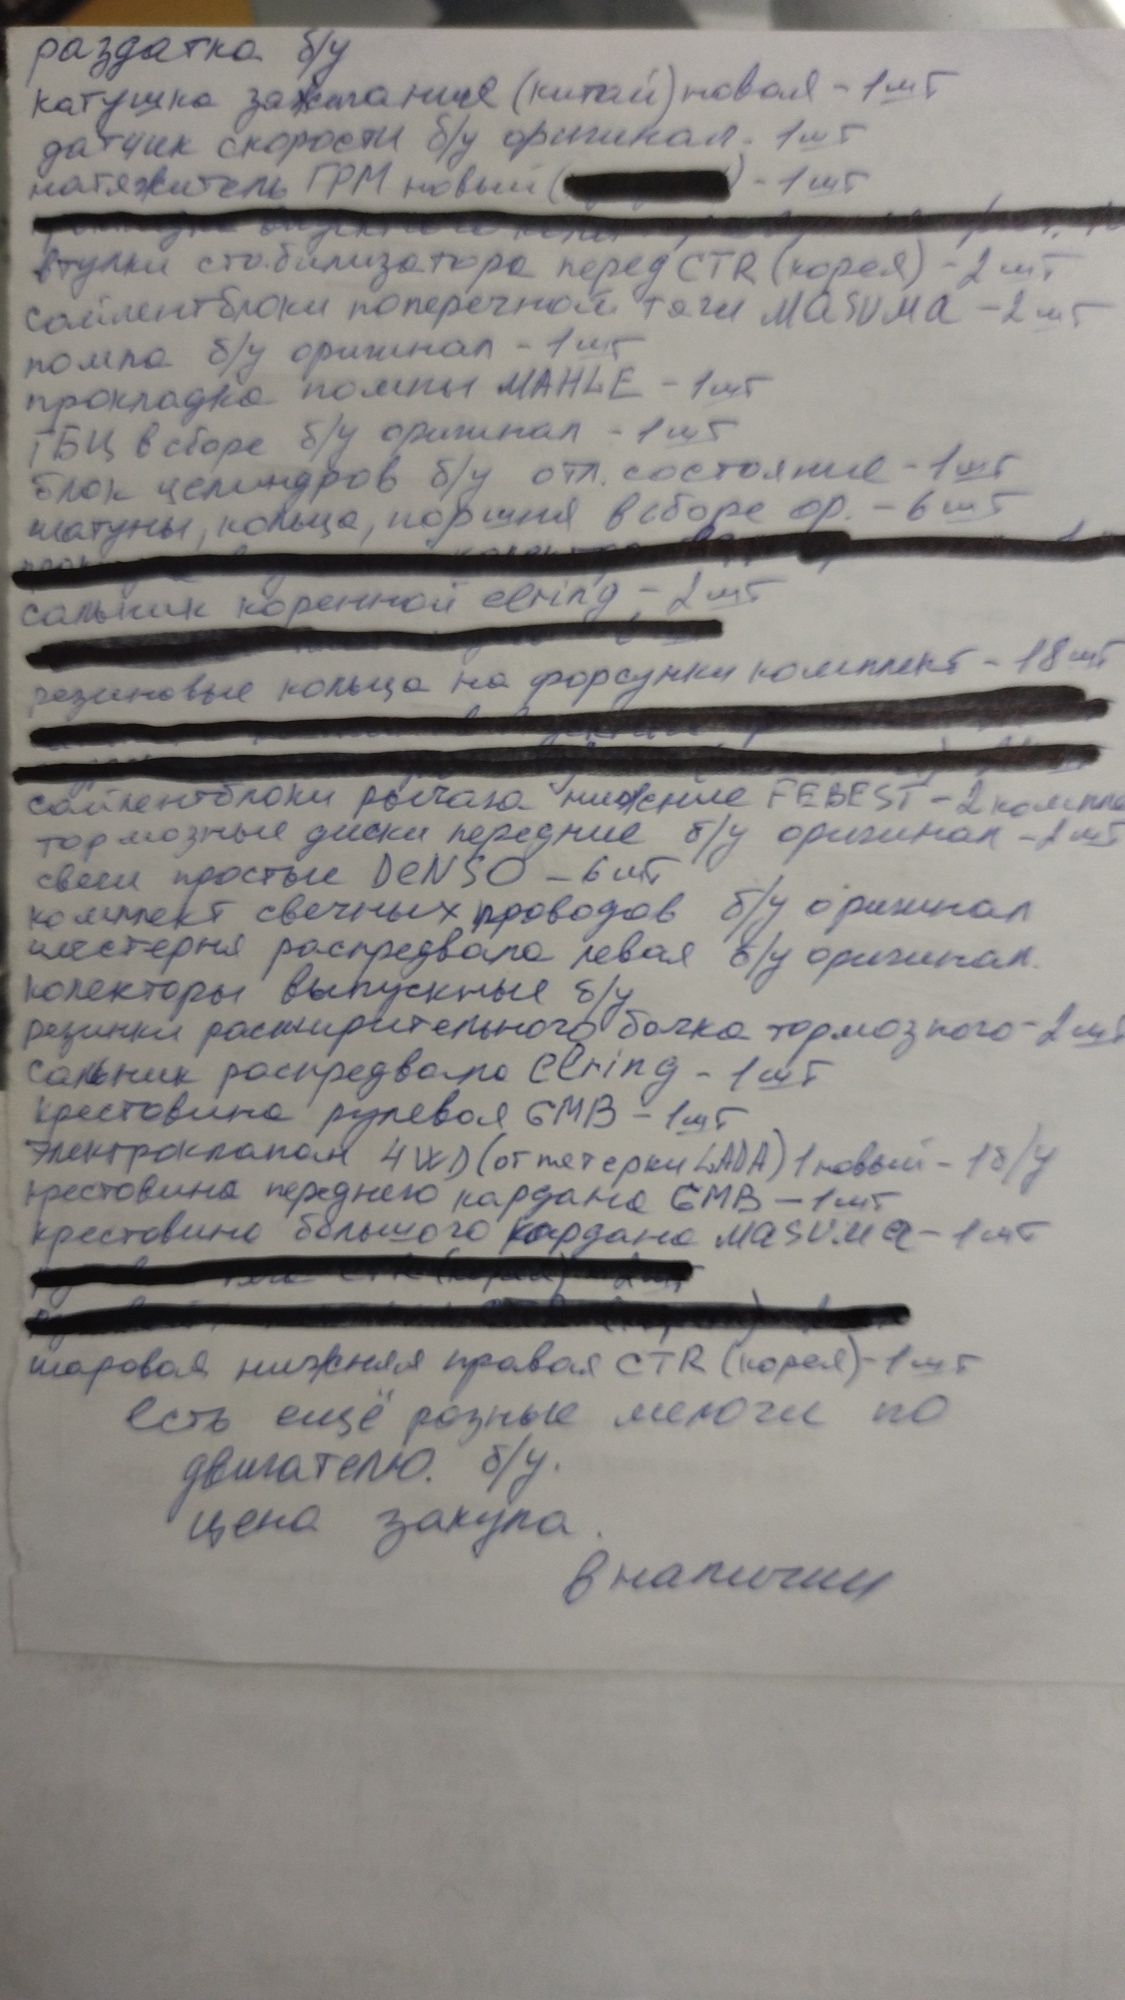 раздатка б/у
катушка зажигания (китай) новая - 1шт
датчик скорости б/у оригинал - 1шт
натяжитель ГРМ новый ( ) - 1шт
втулки стабилизатора перед CTR (корея) - 2шт
сайлентблоки поперечной тяги MASUMA - 2шт
помпа б/у оригинал - 1шт
прокладка помпы MAHLE - 1шт
ГБЦ в сборе б/у оригинал - 1шт
блок целиндров б/у отл. состояние - 1шт
шатуны, кольца, поршня в сборе ор. - 6шт
сальник коренной elring - 2шт
резиновые кольца на форсунки комплект - 18шт
сайлентблоки рычага нижние FEBEST - 2 компле
тормозные диски передние б/у оригинал - 2шт
свечи простые DENSO - 6шт
комплект свечных проводов б/у оригинал
шестерня распредвала левая б/у оригинал.
колекторы выпускные б/у
резинки расширительного бачка тормозного - 2шт
сальник распредвала elring - 1шт
крестовина рулевая GMB - 1шт
электроклапан 4WD (от пятерки LADA) 1 новый - 1 б/у
крестовина переднего кардана GMB - 1шт
крестовина большого кардана MASUMA - 1шт
шаровая нижняя правая CTR (корея) - 1шт
есть ещё разные мелочи по
двигателю. б/у.
цена закупа.
в наличии